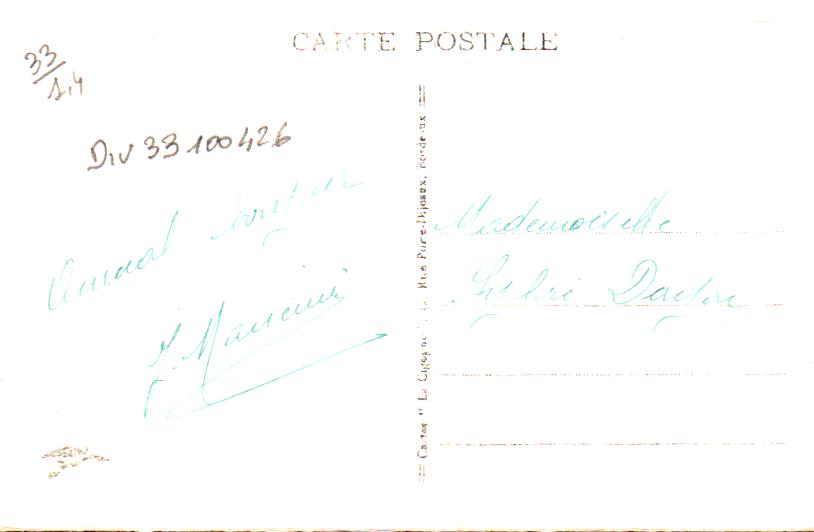 CARTE POSTALE
33/1,4
Div 33100426
Amical bonjour
Mancini
Cartes "La Cigogne", Rue Porte-Dijeaux, Bordeaux
Mademoiselle
Sylvie